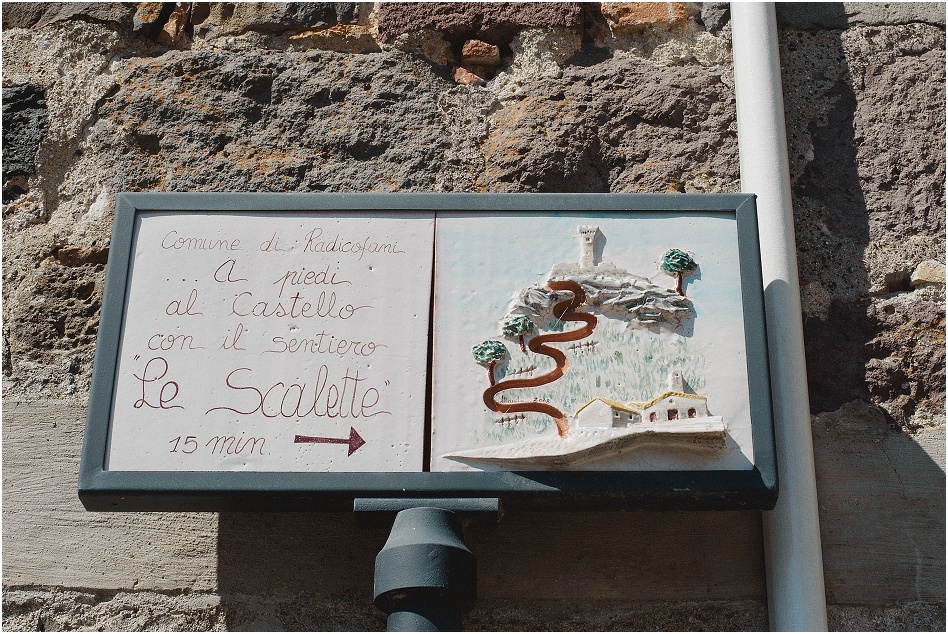 Comune di Radicofani
... A piedi
al Castello
con il sentiero
"Le Scalette"
15 min.